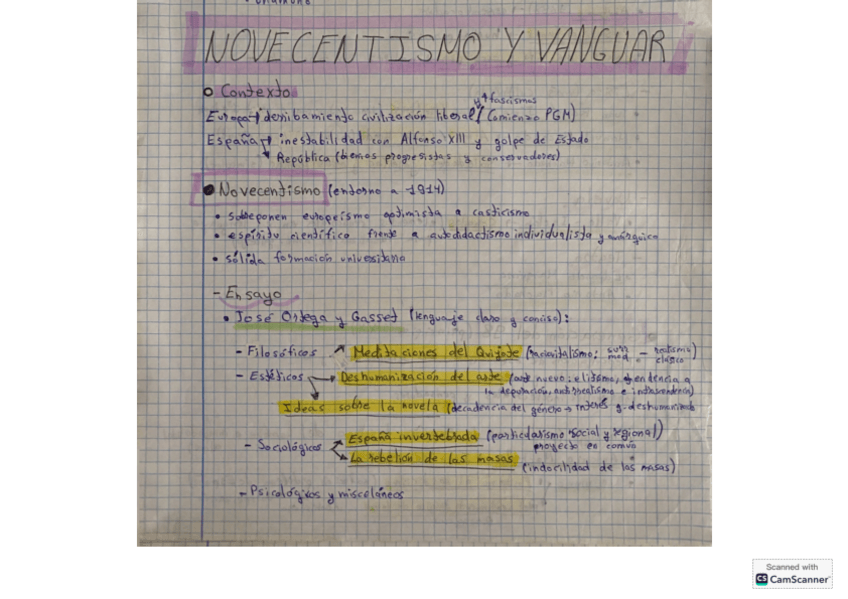 NOVECENTISMO Y VANGUAR
Contexto
y ↑ fascismos
Europa → derribamiento civilización liberal (Comienzo PGM)
España → inestabilidad con Alfonso XIII y golpe de Estado
República (bienios progresistas y conservadores)
Novecentismo (entorno a 1914)
• sobreponen europeísmo optimista a casticismo
• espíritu científico frente a autodidactismo individualista y anárquico
• sólida formación universitaria
- Ensayo
• José Ortega y Gasset (lenguaje claro y conciso):
- Filosóficos → Meditaciones del Quijote (raciovitalismo; - realismo clásico)
- Estéticos → Deshumanización del arte (arte nuevo: elitismo, tendencia a
la depuración, antirrealismo e intrascendencia)
Ideas sobre la novela (decadencia del género → interés y deshumanizado
- Sociológicos España invertebrada (particularismo social y regional)
proyecto en común
La rebelión de las masas (indocilidad de las masas)
- Psicológicos y misceláneos
Scanned with
CS CamScanner